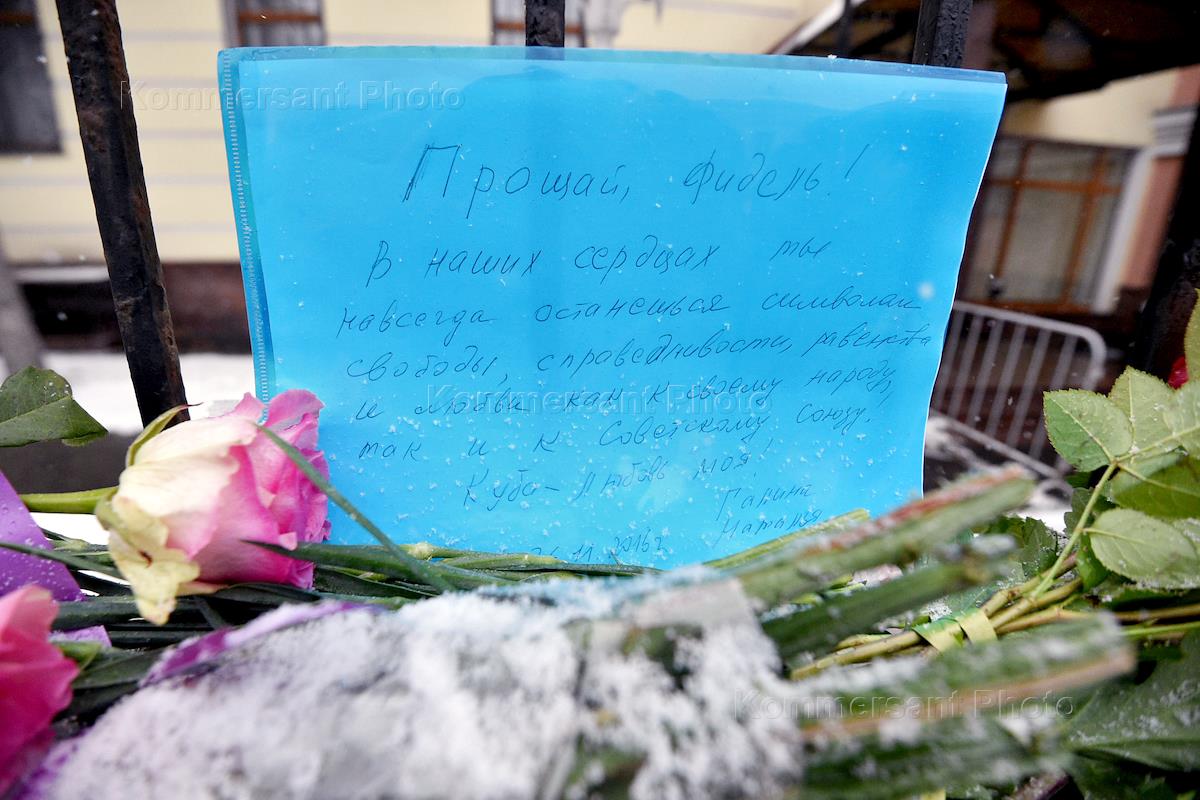 Kommersant Photo
Kommersant Photo
Прощай, Фидель!
В наших сердцах ты
навсегда останешься символом
свободы, справедливости, равенства
и любви как к своему народу,
Kommersant Photo
так и к Советскому Союзу!
Куба – любовь моя!
Галина
Наталья
26.11.2016г
Kommersant Photo